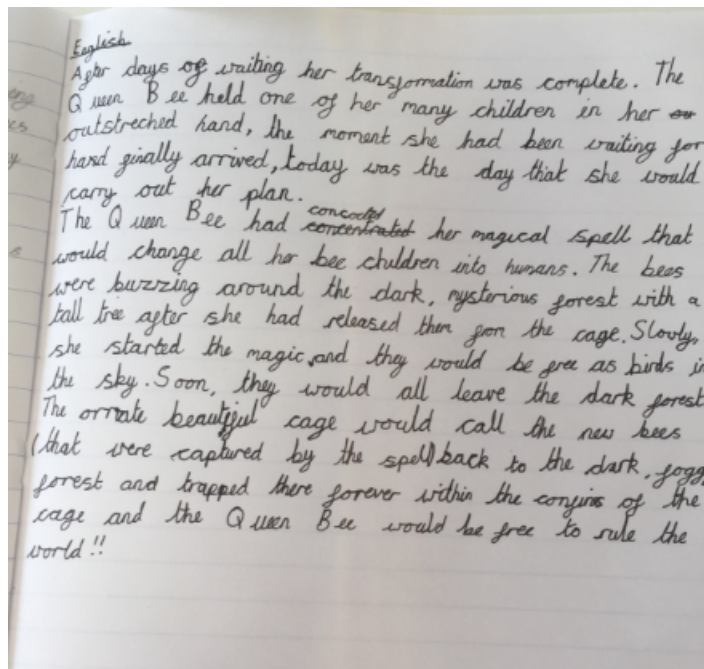 English
After days of waiting her transformation was complete. The
Queen Bee held one of her many children in her
outstreched hand, the moment she had been waiting for
had finally arrived, today was the day that she would
carry out her plan.
The Queen Bee had concocted her magical spell that
would change all her bee children into humans. The bees
were buzzing around the dark, mysterious forest with a
tall tree after she had released them from the cage. Slowly,
she started the magic, and they would be free as birds in
the sky. Soon, they would all leave the dark forest
The ornate beautiful cage would call the new bees
(that were captured by the spell) back to the dark, foggy
forest and trapped there forever within the confins of the
cage and the Queen Bee would be free to rule the
world!!